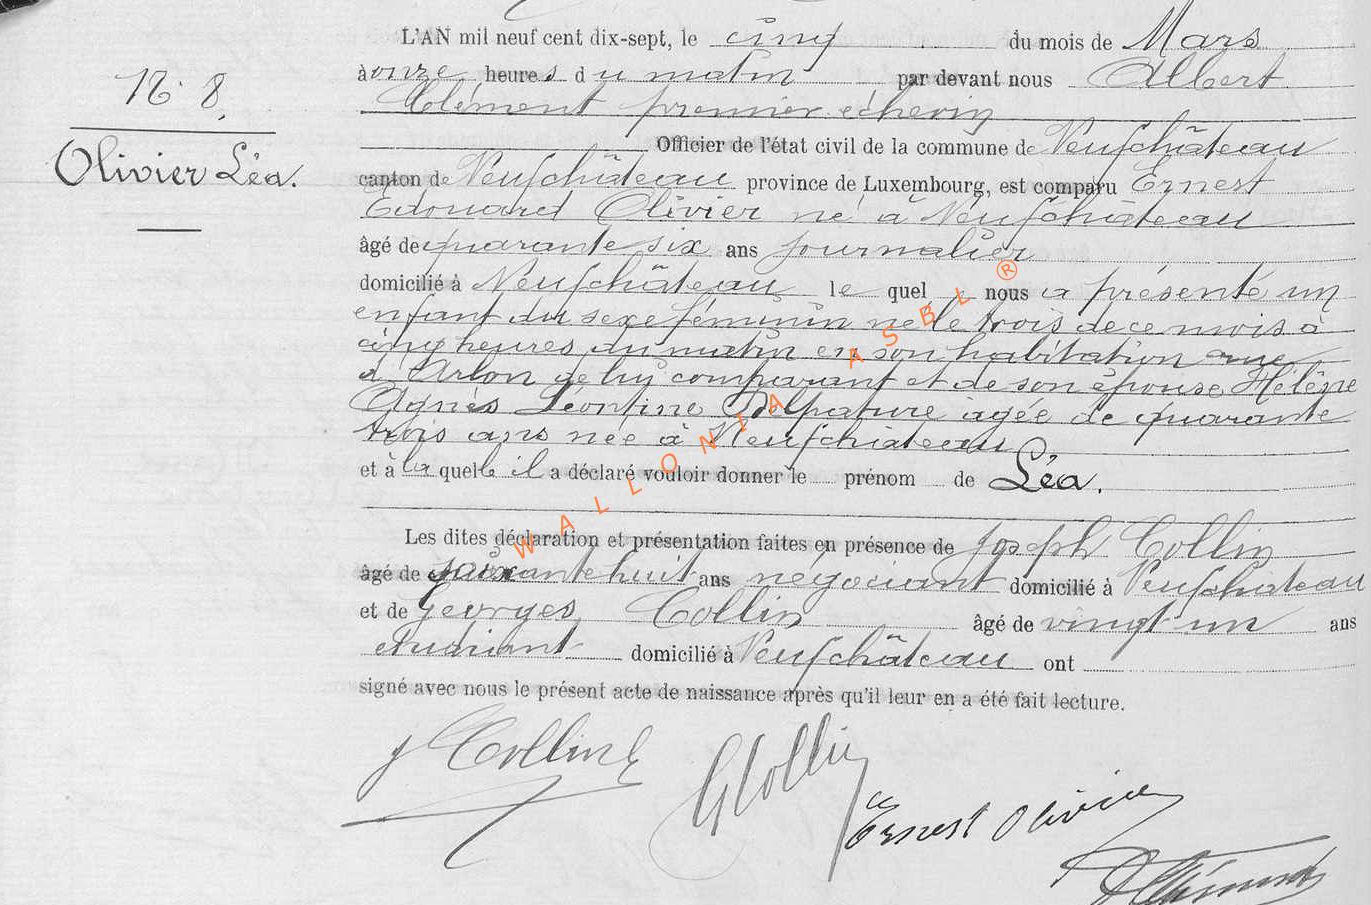 L'AN mil neuf cent dix-sept, le cinq du mois de Mars
à onze heures du matin par devant nous Albert
Clément premier échevin
Officier de l'état civil de la commune de Neufchâteau
canton de Neufchâteau province de Luxembourg, est comparu Ernest
Edouard Olivier né à Neufchâteau
âgé de quarante six ans journalier
domicilié à Neufchâteau le quel nous a présenté un
enfant du sexe féminin né le trois de ce mois à
cinq heures du matin en son habitation rue
d'Arlon de lui comparant et de son épouse Hélène
Agnès Léontine Delpature âgée de quarante
trois ans née à Neufchâteau
et à la quelle il a déclaré vouloir donner le prénom de Léa.
Les dites déclaration et présentation faites en présence de Joseph Collin
âgé de huit ans négociant domicilié à Neufchâteau
et de Georges Collin âgé de vingt-un ans
étudiant domicilié à Neufchâteau ont
signé avec nous le présent acte de naissance après qu'il leur en a été fait lecture.
N° 8.
Olivier Léa.
J Collin
G Collin
Ernest Olivier
A Clément
WALLONIA ASBL ®